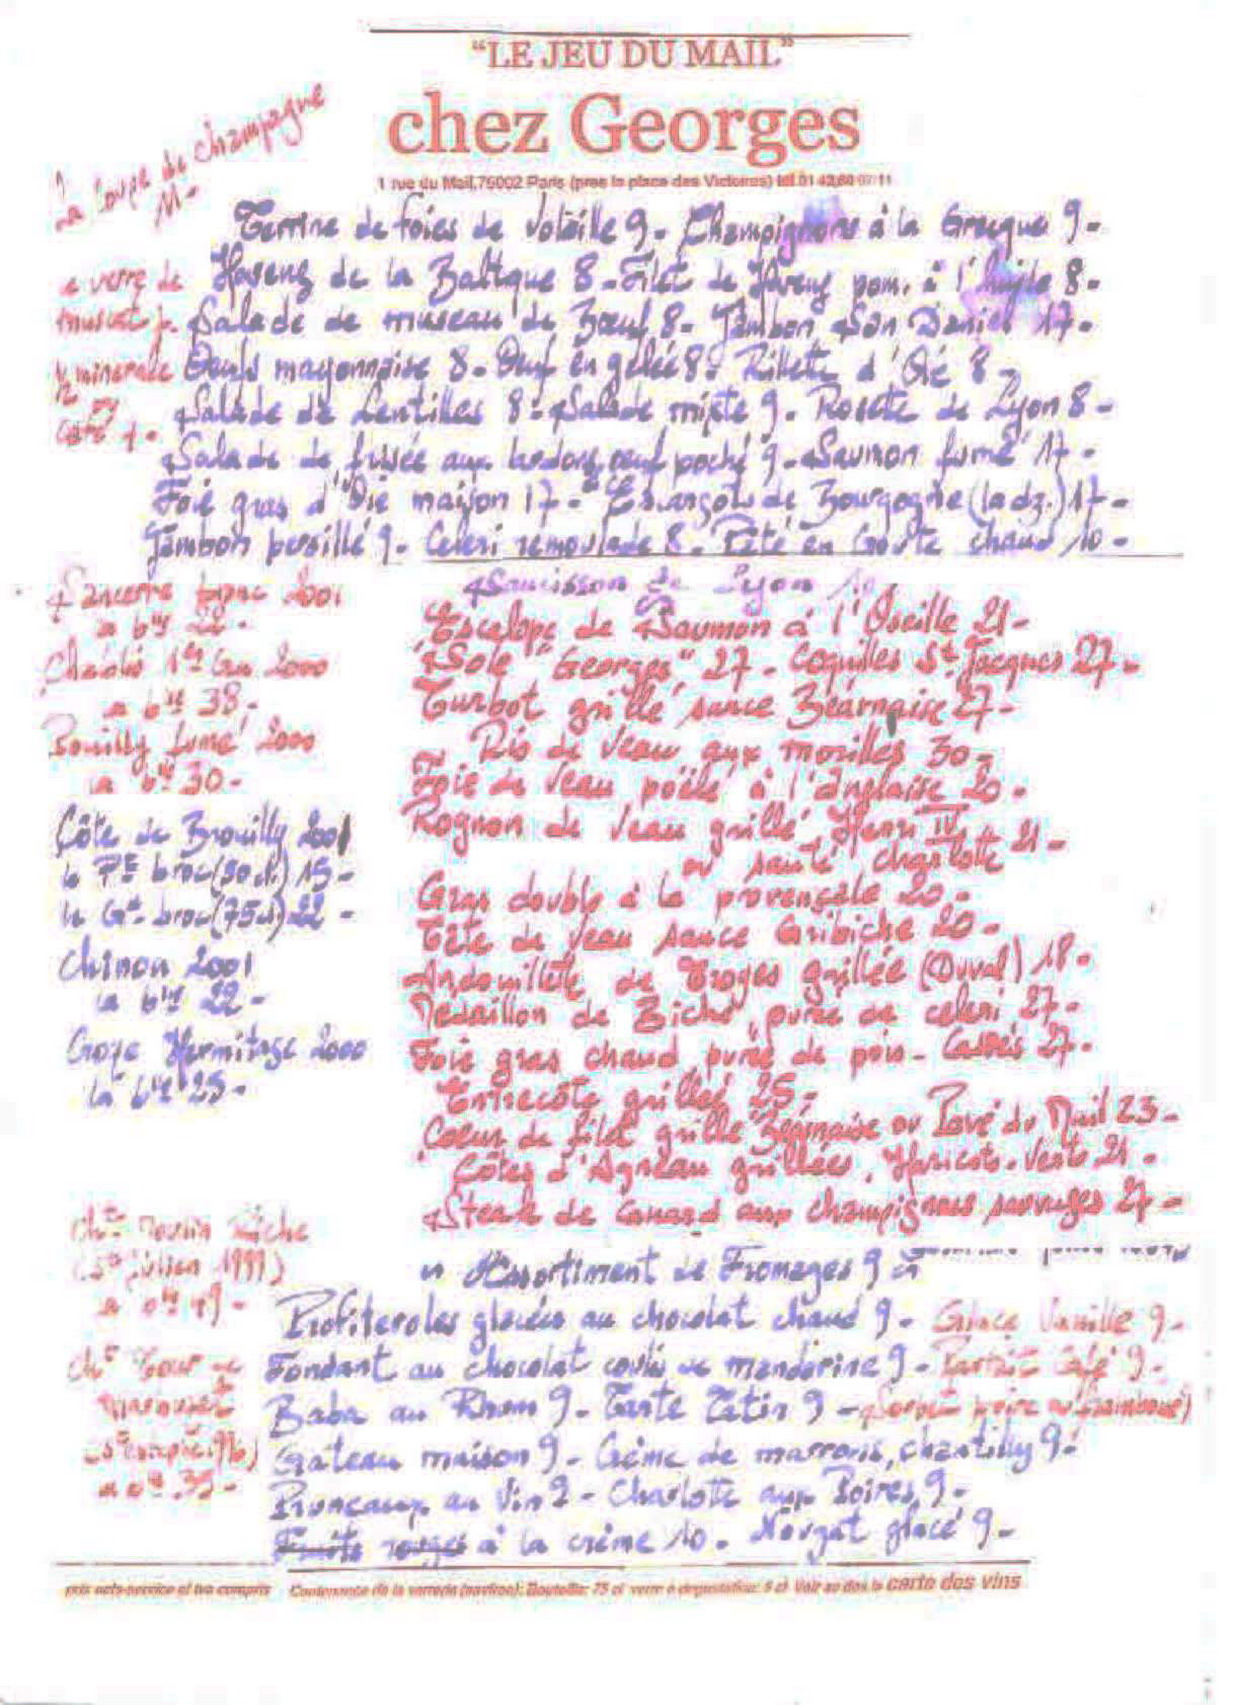 "LE JEU DU MAIL"
chez Georges
1 rue du Mail,75002 Paris (pres la place des Victoires) tél.01 42,60 07 11
La Coupe de champagne
11-
Terrine de foies de Volaille 9- Champignons à la Grecque 9-
Hareng de la Baltique 8- Filet de Hareng pom. à l'huile 8-
Salade de museau de Bœuf 8- Jambon San Daniel 17-
Oeufs mayonnaise 8- Oeuf en gelée 8- Rillette d'Oie 8-
Salade de Lentilles 8- Salade mixte 9- Rosette de Lyon 8-
Salade de frisée aux lardons, oeuf poché 9- Saumon fumé 17-
Foie gras d'Oie maison 17- Escargots de Bourgogne (la dz.) 17-
Jambon persillé 9- Celeri remoulade 8- Pâté en Croute chaud 10-
e verre de
muscat 7-
minerale
1/2
café 4-
Saucisson de Lyon 10
Escalope de Saumon à l'Oseille 21-
Sole "Georges" 27- Coquilles St Jacques 27-
Turbot grillé sauce Béarnaise 27-
Ris de Veau aux morilles 30-
Foie de Veau poêlé à l'Anglaise 20-
Rognon de Veau grillé Henri IV
ou sauté 21-
Gras double à la provençale 20-
Tête de Veau sauce Gribiche 20-
Andouillette de Troyes grillée (Duval) 18-
Medaillon de Biche purée de celeri 27-
Foie gras chaud purée de pois-Cassés 27-
Entrecôte grillée 25-
Coeur de filet grillé Béarnaise ou Pavé du Mail 23-
Côtes d'Agneau grillées, Haricots-Verts 21-
Steak de Canard aux champignons sauvages 27-
Sancerre blanc 2001
la bll 22-
Chablis 1er Cru 2000
la bll 38-
Pouilly fumé 2000
la bll 30-
Côte de Brouilly 2001
le Pt broc(50cl.) 15-
le Gd broc(75cl) 22-
Chinon 2001
la bll 22-
Croze Hermitage 2000
la bll 25-
Riche
(St Julien 1999)
Cht Tour de
Marbuzet
(St Estephe 96)
35-
Assortiment de Fromages 9
Profiteroles glacées au chocolat chaud 9- Glace Vanille 9-
Fondant au chocolat coulis de mandarine 9- Parfait Café 9-
Baba au Rhum 9- Tarte Tatin 9- Sorbet poire ou framboise)
Gateau maison 9- Crème de marrons, chantilly 9-
Pruneaux au Vin 9- Charlotte aux Poires 9-
Fruits rouges à la crème 10- Nougat glacé 9-
prix nets-service et tva compris
Contenance de la verrerie (environ): Bouteille: 75 cl verre à dégustation: 8 cl Voir au dos la carte des vins